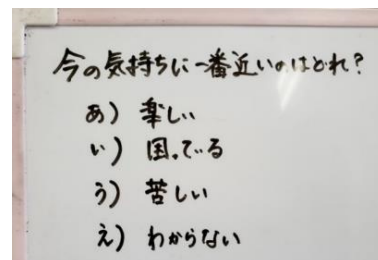 今の気持ちに一番近いのはどれ？
あ) 楽しい
い) 困っている
う) 苦しい
え) わからない